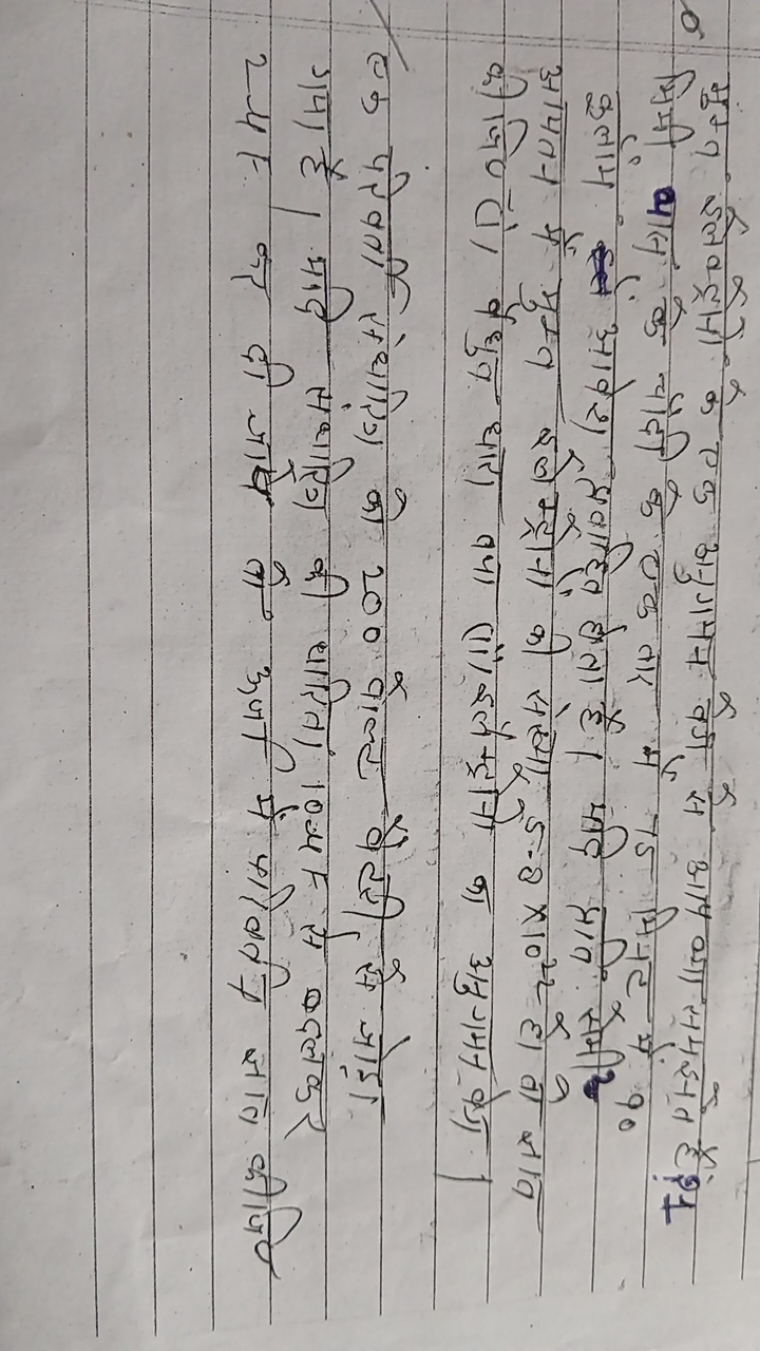 मुक्त इलेक्ट्रॉनों के एक अनुगमन वेग से आप क्या समझते हैं? 1
मिमी व्यास के चाँदी के एक तार में 75 मिनट में 90
कूलॉम आवेश प्रवाहित होता है। यदि प्रति सेमी
आयतन में मुक्त इलेक्ट्रॉनों की संख्या 5.8 × 10²² हो तो ज्ञात
कीजिए। वैधुत धारा तथा (ii) इलेक्ट्रॉनों का अनुगमन वेग।
एक परिवर्ती संधारित्र को 200 वोल्ट बैटरी से जोड़ा
गया है। यदि संधारित्र की धारिता 10 μF से बदलकर
2 μF कर दी जाये तो ऊर्जा में परिवर्तन ज्ञात कीजिए